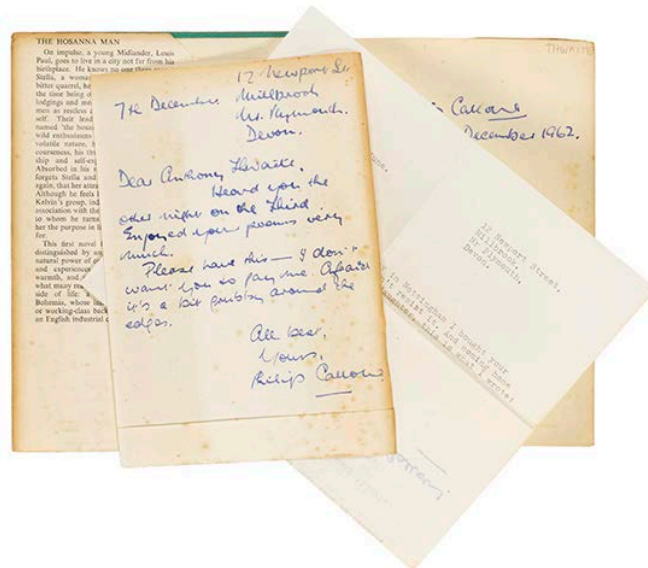 THE HOSANNA MAN
On impulse, a young Midlander, Louis
Paul, goes to live in a city not far from his
birthplace. He knows no one there
Stella, a woman
bitter quarrel, he
the time being of
lodgings and me
men as reckless a
self. Their lead
named 'the hosan
wild enthusiasms
volatile nature, h
coarseness, his thi
ship and self-exp
Absorbed in his n
forgets Stella and
again, that her attra
Although he feels h
Kelvin's group, ind
association with the
to whom he turns
her the purpose in li
for.
This first novel
distinguished by an
natural power of
and experience
warmth, and
what many
side of life: a
Bohemia, whose
or working-class back
an English industrial c
12 Newport St.
7th December. Millbrook
Nr. Plymouth.
Devon.
Dear Anthony Thwaite,
Heard you the
other night on the Third.
Enjoyed your poems very
much.
Please have this — I don't
want you to pay me. Afraid
it's a bit grubby around the
edges.
All best,
Yours,
Philip Callow
THWAITE
Callow
December 1962.
12 Newport Street,
Millbrook,
Nr. Plymouth,
Devon.
in Nottingham I bought your
resist it, and coming home
this is what I wrote: